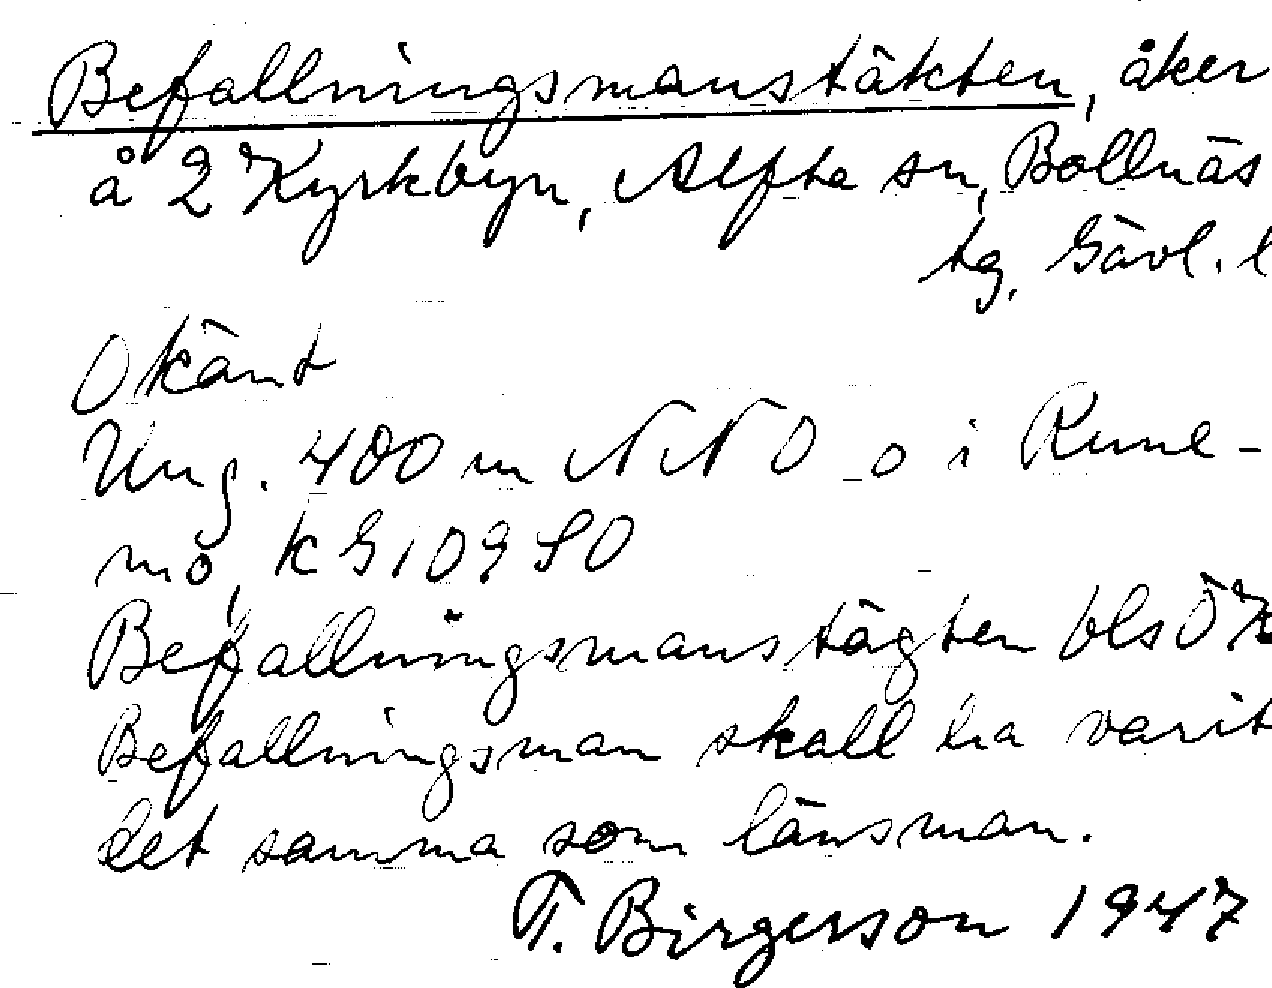 Befallningsmanstäkten, åker
å 2 Kyrkbyn, Alfta sn, Bollnäs
tg, Gävl. l
Okänt
Ung. 400 m NNO o i Rune-
mo, k
Befallningsmanstägten bls ÖK
Befallningsman skall ha varit
det samma som länsman.
T. Birgerson 1947